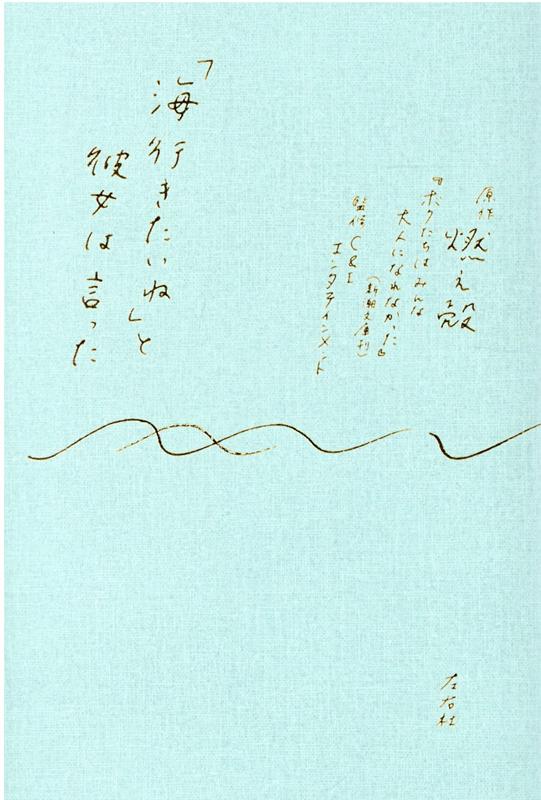 「海行きたいね」と
彼女は言った
原作
燃え殻
『ボクたちはみんな
大人になれなかった』
（新潮文庫刊）
監修 C&I
エンタテインメント
左右社